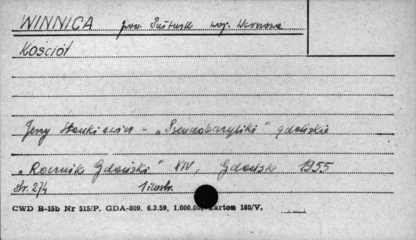 WINNICA pow. Pułtusk woj. Warszawa
Kościół
Jerzy Stankiewicz - „Pseudobazyliki" gdańskie
„Rocznik Gdański" XIV, Gdańsk 1955
str. 274 1 ilustr.
CWD B-15b Nr 515/P. GDA-809. 6.3.59, 1.000.000 Karton 180/V.